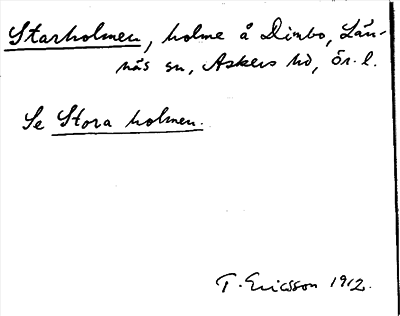 Starholmen, holme å Dimbo, Län-
näs sn, Askers hd, Ör. l.
Se Stora holmen.
T. Ericsson 1912.